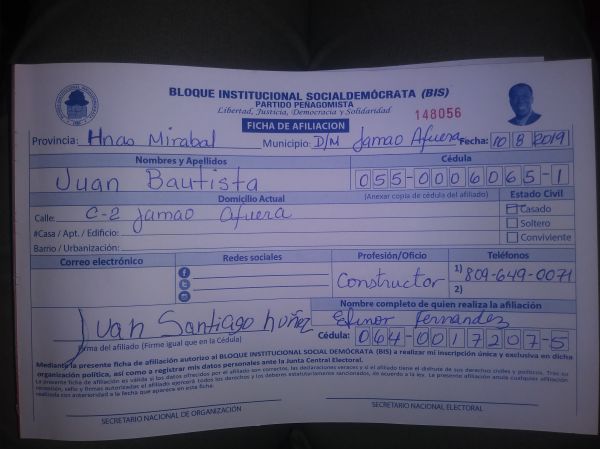 BLOQUE INSTITUCIONAL SOCIALDEMÓCRATA (BIS)
PARTIDO PEÑAGOMISTA
Libertad, Justicia, Democracia y Solidaridad
148056
FICHA DE AFILIACION
Provincia: Hnas Mirabal Municipio: D/M Jamao Afuera Fecha: 10/8/2019
Nombres y Apellidos Cédula
Juan Bautista 055-0006065-1
Domicilio Actual (Anexar copia de cédula del afiliado) Estado Civil
Calle: C-2 Jamao Afuera Casado
#Casa / Apt. / Edificio: Soltero
Barrio / Urbanización: Conviviente
Correo electrónico Redes sociales Profesión/Oficio Teléfonos
Constructor 1) 809-649-0071
2)
Nombre completo de quien realiza la afiliación
Juan Santiago Nuñez Fernandez
Firma del afiliado (Firme igual que en la Cédula) Cédula: 064-0017207-5
Mediante la presente ficha de afiliación autorizo al BLOQUE INSTITUCIONAL SOCIAL DEMÓCRATA (BIS) a realizar mi inscripción única y exclusiva en dicha
organización política, así como a registrar mis datos personales ante la Junta Central Electoral.
SECRETARIO NACIONAL DE ORGANIZACIÓN SECRETARIO NACIONAL ELECTORAL